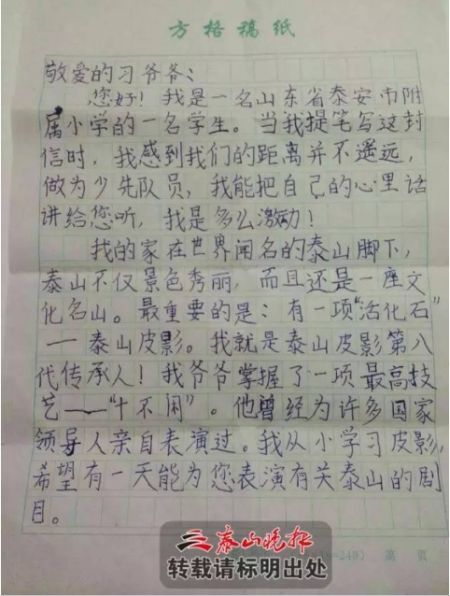 方格稿纸
敬爱的习爷爷：
您好！我是一名山东省泰安市附
属小学的一名学生。当我提笔写这封
信时，我感到我们的距离并不遥远，
做为少先队员，我能把自己的心里话
讲给您听，我是多么激动！
我的家在世界闻名的泰山脚下，
泰山不仅景色秀丽，而且还是一座文
化名山。最重要的是：有一项“活化石”
——泰山皮影。我就是泰山皮影第八
代传承人！我爷爷掌握了一项最高技
艺——“十不闲”。他曾经为许多国家
领导人亲自表演过。我从小学习皮影，
希望有一天能为您表演有关泰山的剧
目。
泰山晚报
转载请标明出处
=240） 第 页